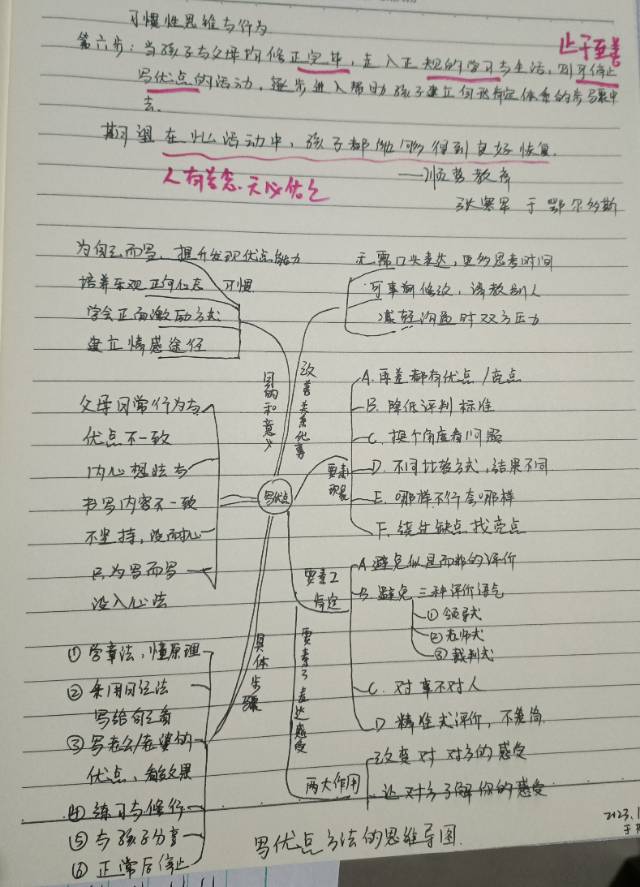 习惯性思维与行为
止于至善
第六步：当孩子与父母均修正完毕，走入正规的学习与生活，则可停止
写优点的活动，逐步进入帮助孩子建立自我肯定体系的步骤中
去。
期望在此活动中，孩子都能够得到良好恢复。
——顺势教育
人有善念 天必佑之
于鄂尔多斯
为自己而写，提升发现优点能力
培养乐观正向心态 习惯
学会正面激励方式
建立情感途径
无需口头表达，更多思考时间
可事前修改，请教别人
减轻沟通时双方压力
目的和意义
改善关系化事
父母日常行为与
优点不一致
内心想法与
书写内容不一致
不坚持，没耐心
只为写而写
没入心法
写优点
要素1
A. 再差都有优点/亮点
B. 降低评判标准
C. 换个角度看问题
D. 不同比较方式，结果不同
E. 哪样不行夸哪样
F. 绕开缺点找亮点
要素2
肯定
A 避免似是而非的评价
B 避免三种评价语气
① 领导式
② 老师式
③ 裁判式
C. 对事不对人
D 精准式评价，不笼统
要素3 表达感受
两大作用
改变对对方的感受
让对方了解你的感受
具体步骤
① 学章法，懂原理
② 采用日记法
写给自己看
③ 写老公/老婆的
优点，看效果
④ 练习与修行
⑤ 与孩子分享
⑥ 正常后停止
写优点方法的思维导图
2023.1
于